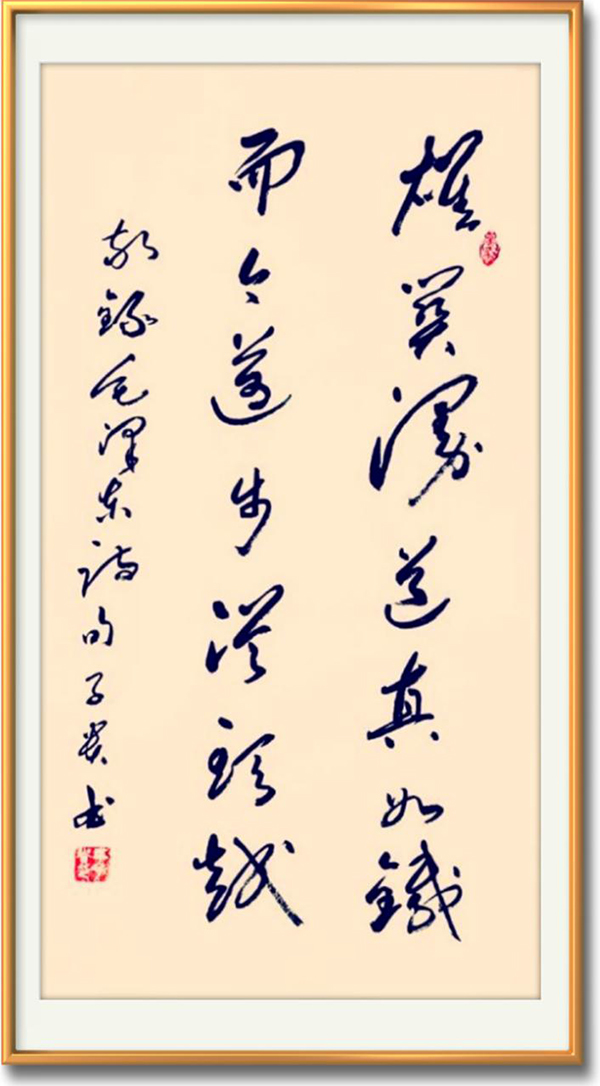 雄關漫道真如鐵
而今邁步從頭越
敬錄毛澤東詩句子書